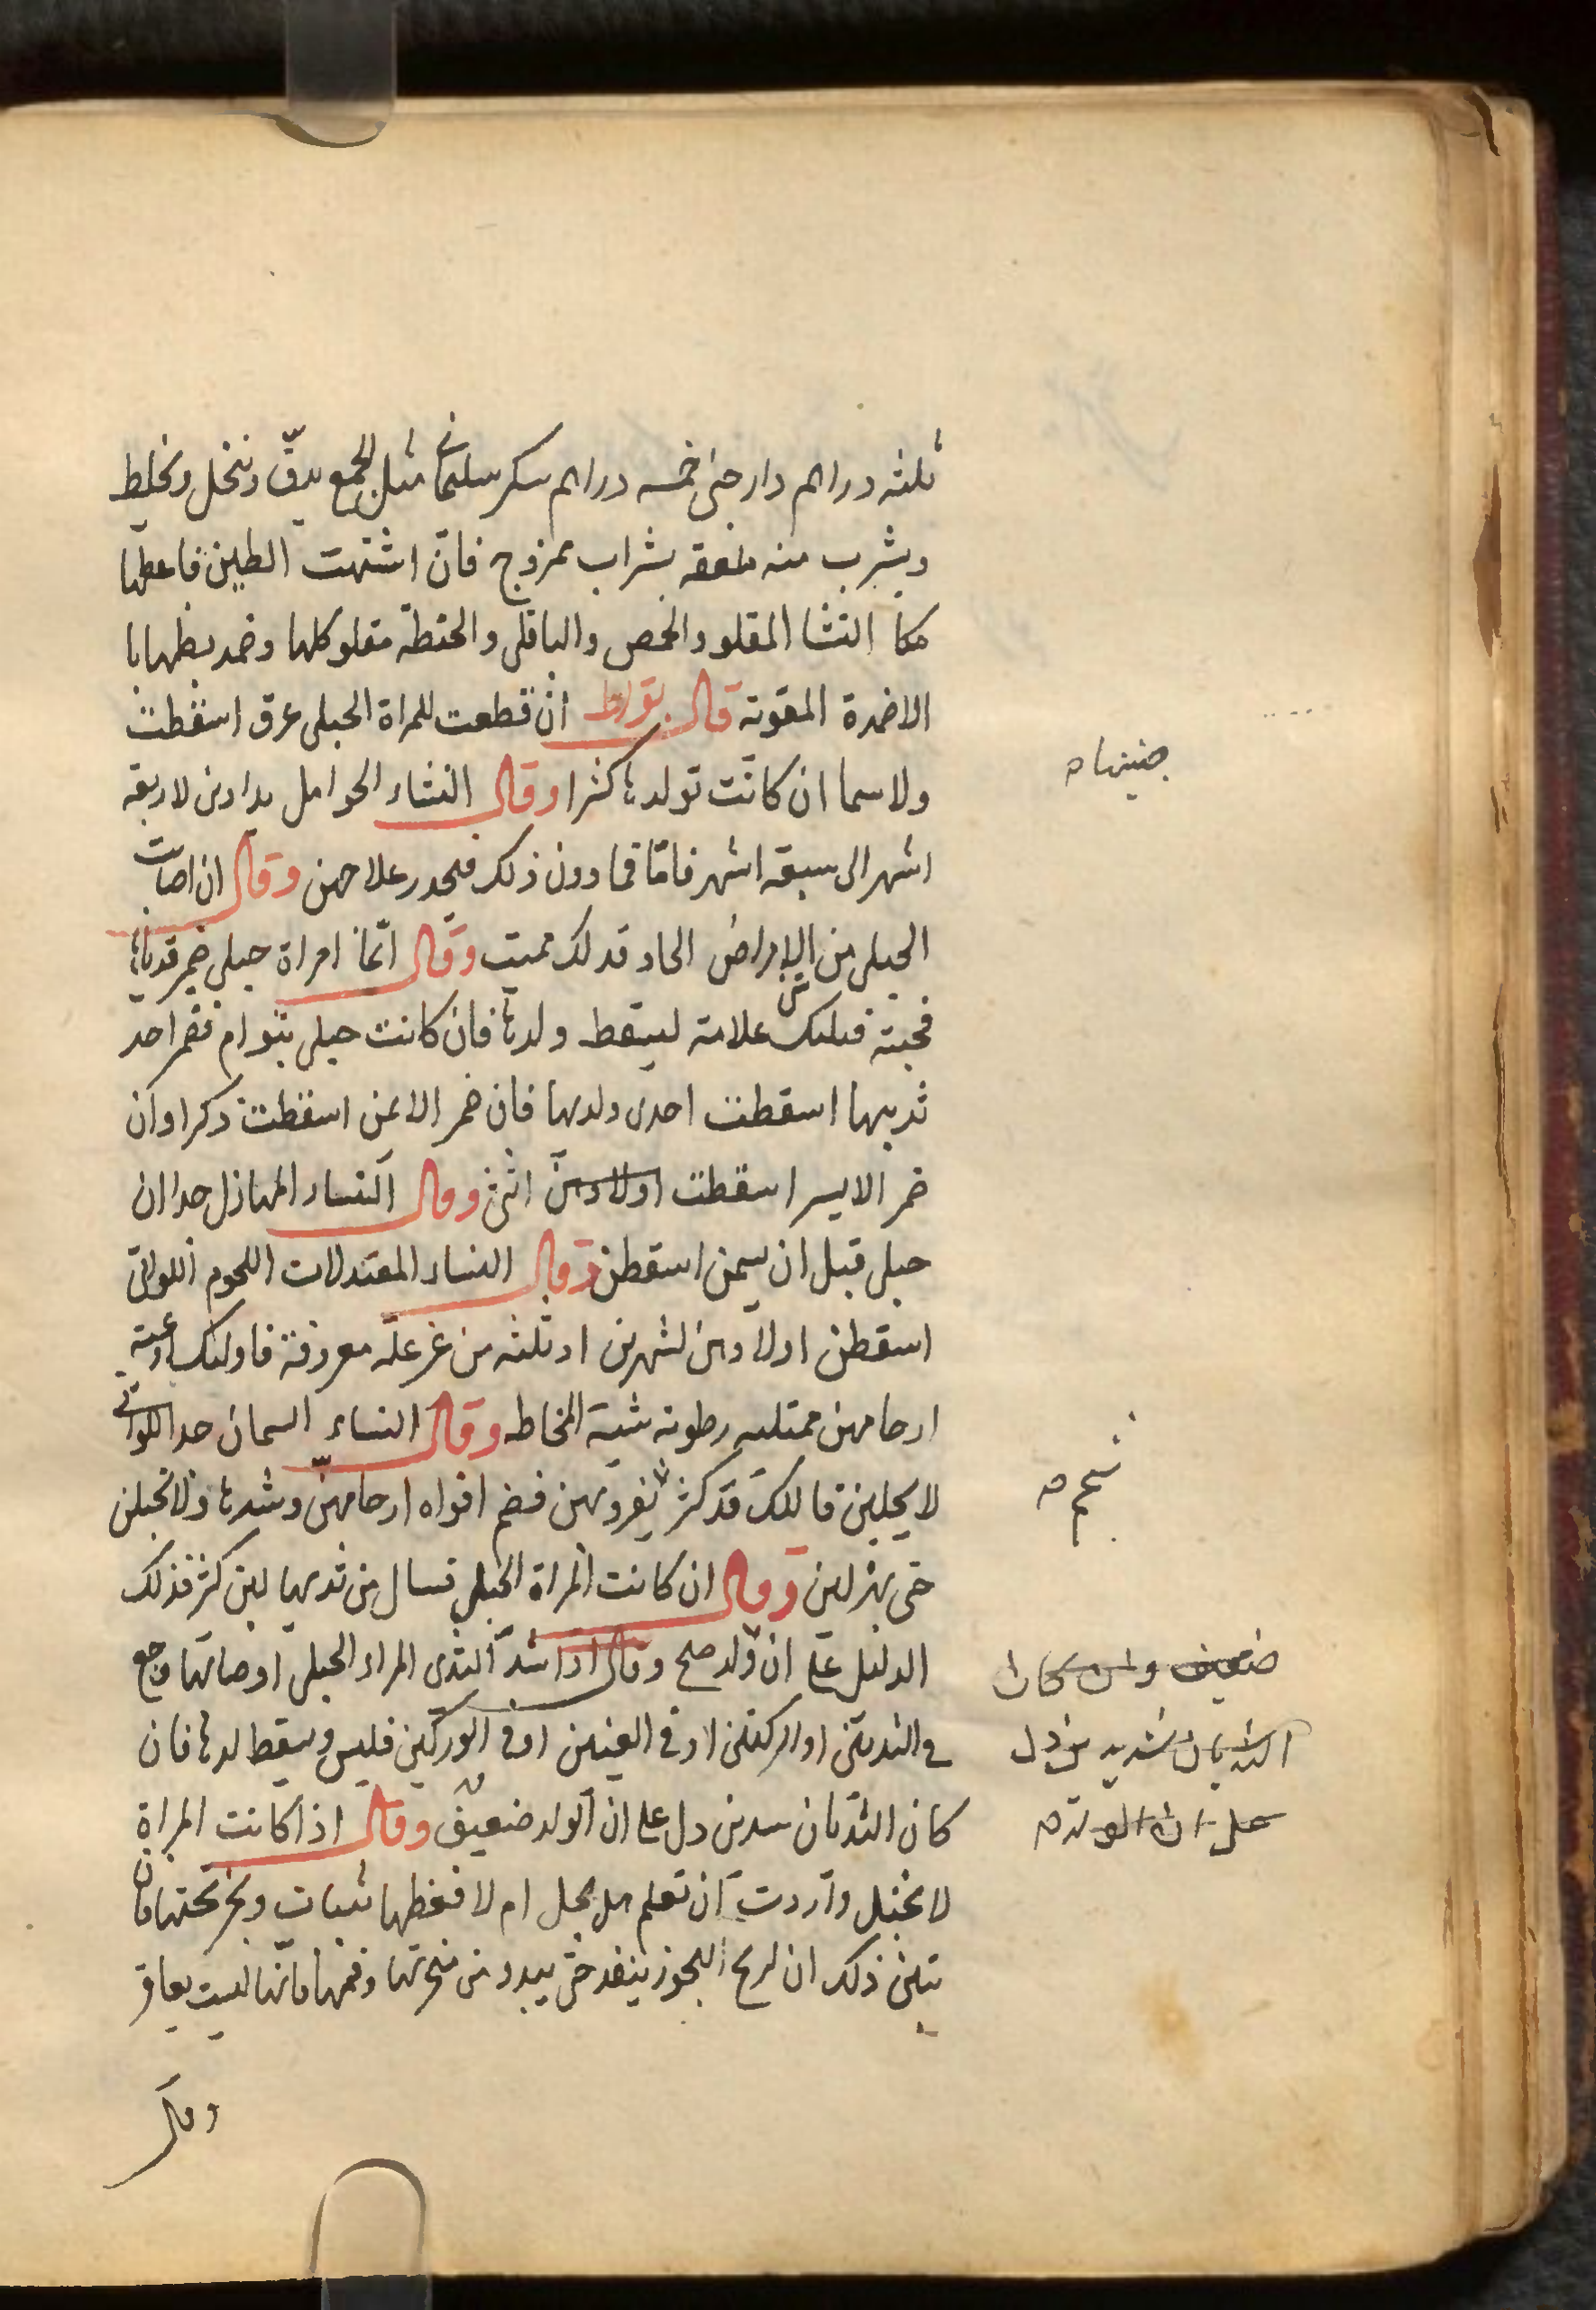 ثلثه دراهم دارجينى خمسه دراهم سكر سليمانى مثل الجمع يدقّ وينخل ويخلط
ويشرب منه ملعقه بشراب ممزوج فان اشتهت الطين فاعطها
مكا النشا المقلو والحمص والباقلى والحنطة مقلو كلها وضمد بطنها با
الاضمدة المقويه قال بقراط ان قطعت للمراة الحبلى عرق اسقطت
ولاسيما ان كانت تولدها كثيرا وقال النساء الحوامل يداوين لاربعة
جنينها ه
اشهر الى سبعة اشهر فامّا فما دون ذلك فيحذر علاجهن وقال ان اصابت
الحبلى من الامراض الحاد فذلك مميت وقال انما امراة حبلى ضمر ثدياها
فجئة فبتلك علامة ليسقط ولدها فان كانت حبلى بتوام فضمر احد
ثدييها اسقطت احدى ولديها فان ضمر الايمن اسقطت ذكرا وان
ضمر الايسر اسقطت اولادهن انثى وقال النساء المهازل جدا ان
حبلى قبل ان يسمن اسقطن وقال النساء المعتدلات اللحوم اللواتى
اسقطن اولادهن لشهرين او ثلثه من غير علّة معروفة فاولئك اوعية
ارحامهن ممتليه رطوبه شبيه المخاطه وقال النساء السمان جدا اللواتى
لا يحبلن فاللك قد كثر يفروهن فضم افواه ارحامهنّ وشدها ولا تحبلن
شحم ه
حتى يهزلن وقال ان كانت المراة الحبلى تسال من ثدييها لبن كثر فذلك
الدليل على ان ولد صح وقال اذا اشتد الثدى المراه الحبلى او صابها وجع
ضعيف وان كان
فى الثديين او الركبتين او فى العينين او فى الوركين فليس ويسقط لدها فان
الثديان شديدين دل
كان الثديان سدين دل على ان الولد ضعيف وقال اذا كانت المراة
على ان الولد ه
لا تحبل واردت ان تعلم هل تحبل ام لا فغطها بثياب وبخر تحتها فان
تبين ذلك ان لريح البخور ينفذ حتى يبدو من منخرتها وفمها فانها ليست بعاقر
وقال